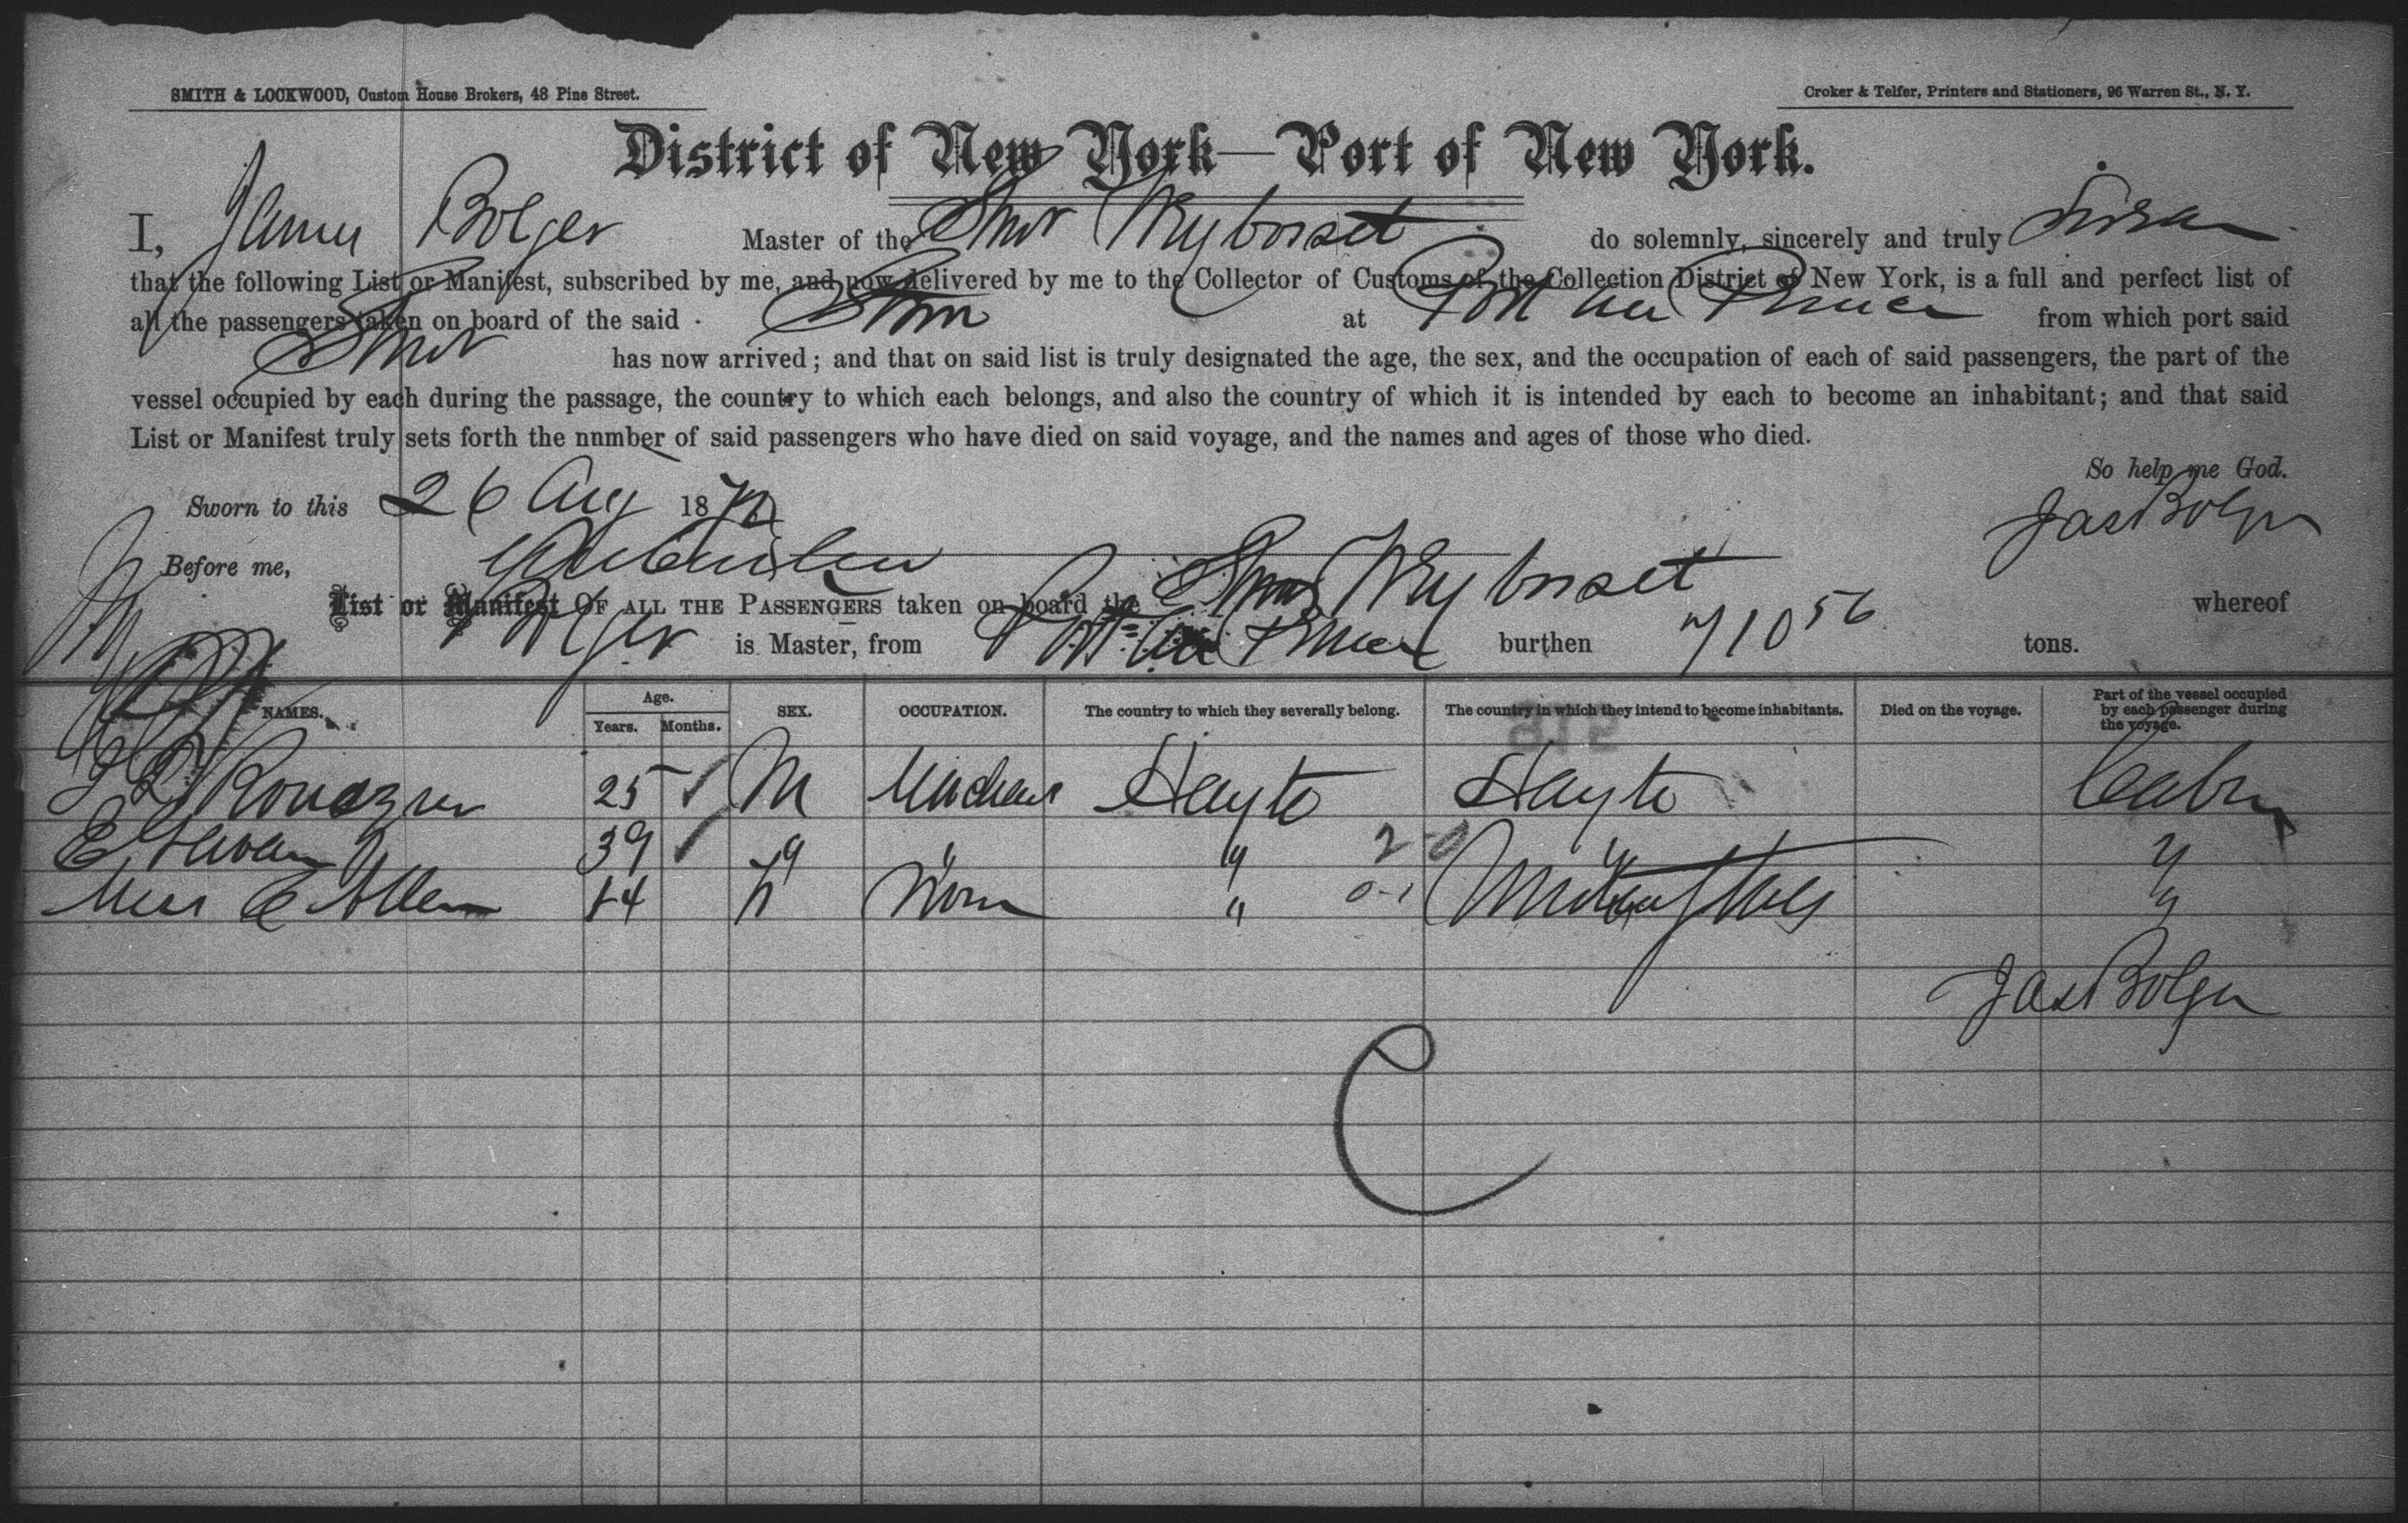 SMITH & LOCKWOOD, Custom House Brokers, 48 Pine Street.
Croker & Telfer, Printers and Stationers, 96 Warren St., N. Y.
District of New York—Port of New York.
I, James Bolger Master of the Stmr Weybosset do solemnly, sincerely and truly swear
that the following List or Manifest, subscribed by me, and now delivered by me to the Collector of Customs of the Collection District of New York, is a full and perfect list of
all the passengers taken on board of the said Stmr at Port au Prince from which port said
Stmr has now arrived; and that on said list is truly designated the age, the sex, and the occupation of each of said passengers, the part of the
vessel occupied by each during the passage, the country to which each belongs, and also the country of which it is intended by each to become an inhabitant; and that said
List or Manifest truly sets forth the nnmber of said passengers who have died on said voyage, and the names and ages of those who died.
So help me God.
Sworn to this 26 Aug 18
Jas Bolger
Before me,
List or Manifest OF ALL THE PASSENGERS taken on board the Stmr Weybosset whereof
Bolger is Master, from Port au Prince burthen 710 56 tons.
NAMES. Age. Years. Months. SEX. OCCUPATION. The country to which they severally belong. The country in which they intend to become inhabitants. Died on the voyage. Part of the vessel occupied by each passenger during the voyage.
25 M Hayti Hayti Cabin
E 39 " " " 2 " "
Miss E Allen 14 " United States "
Jas Bolger
C